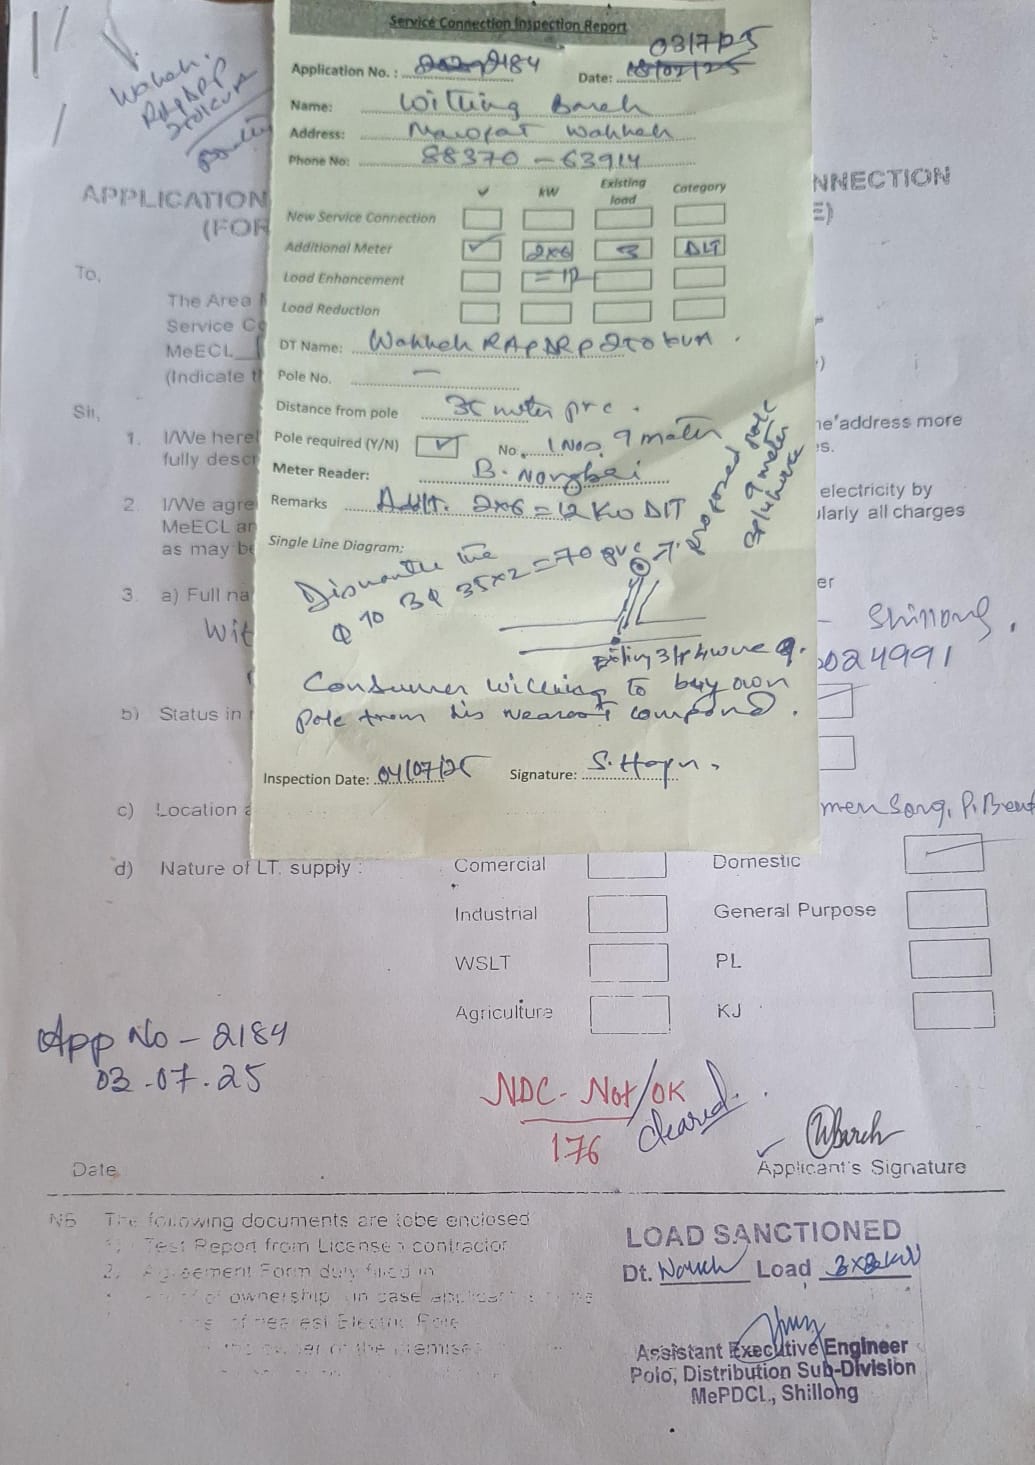 Service Connection Inspection Report
Application No. : 2184 Date: 03/7/25
Name: Withing Bareh
Address: Mawpat Wahkah
Phone No: 88370 - 63914
kW Existing load Category
New Service Connection
Additional Meter 2x6 3 DLT
Load Enhancement = 12
Load Reduction
DT Name: Wahkah RAPDRP
Pole No. —
Distance from pole 35 meter pvc.
Pole required (Y/N) No. 1 Nos, 9 meter
Meter Reader: B. Nongbri
Remarks Addt. 2x6 = 12 KW DLT
Single Line Diagram:
Dismantle the
10 3φ 35x2 = 70 pvc → proposed pole
9 meter
Existing 3φ 4 wire
Consumer willing to buy own
pole from his nearest compound.
Inspection Date: 04/07/25 Signature:
APPLICATION NNECTION
(FOR E)
To,
The Area
Service C
MeECL
(Indicate t
Sir,
1. I/We here he address more
fully desc s.
2. I/We agre electricity by
MeECL an ularly all charges
as may b
3. a) Full na er
Wit - Shillong.
024991
b) Status in
c) Location a
d) Nature of LT. supply : Comercial Domestic
Industrial General Purpose
WSLT PL
Agriculture KJ
App No - 2184
03.07.25
NDC- Not/OK
176 cleared.
Date Applicant's Signature
NB The following documents are tobe enclosed
1) Test Report from License contractor
2. Agreement Form duly filled in
of ownership in case applicant is
of nearest Electric Pole
the owner of the premises
LOAD SANCTIONED
Dt. Load
Assistant Executive Engineer
Polo, Distribution Sub-Division
MePDCL, Shillong